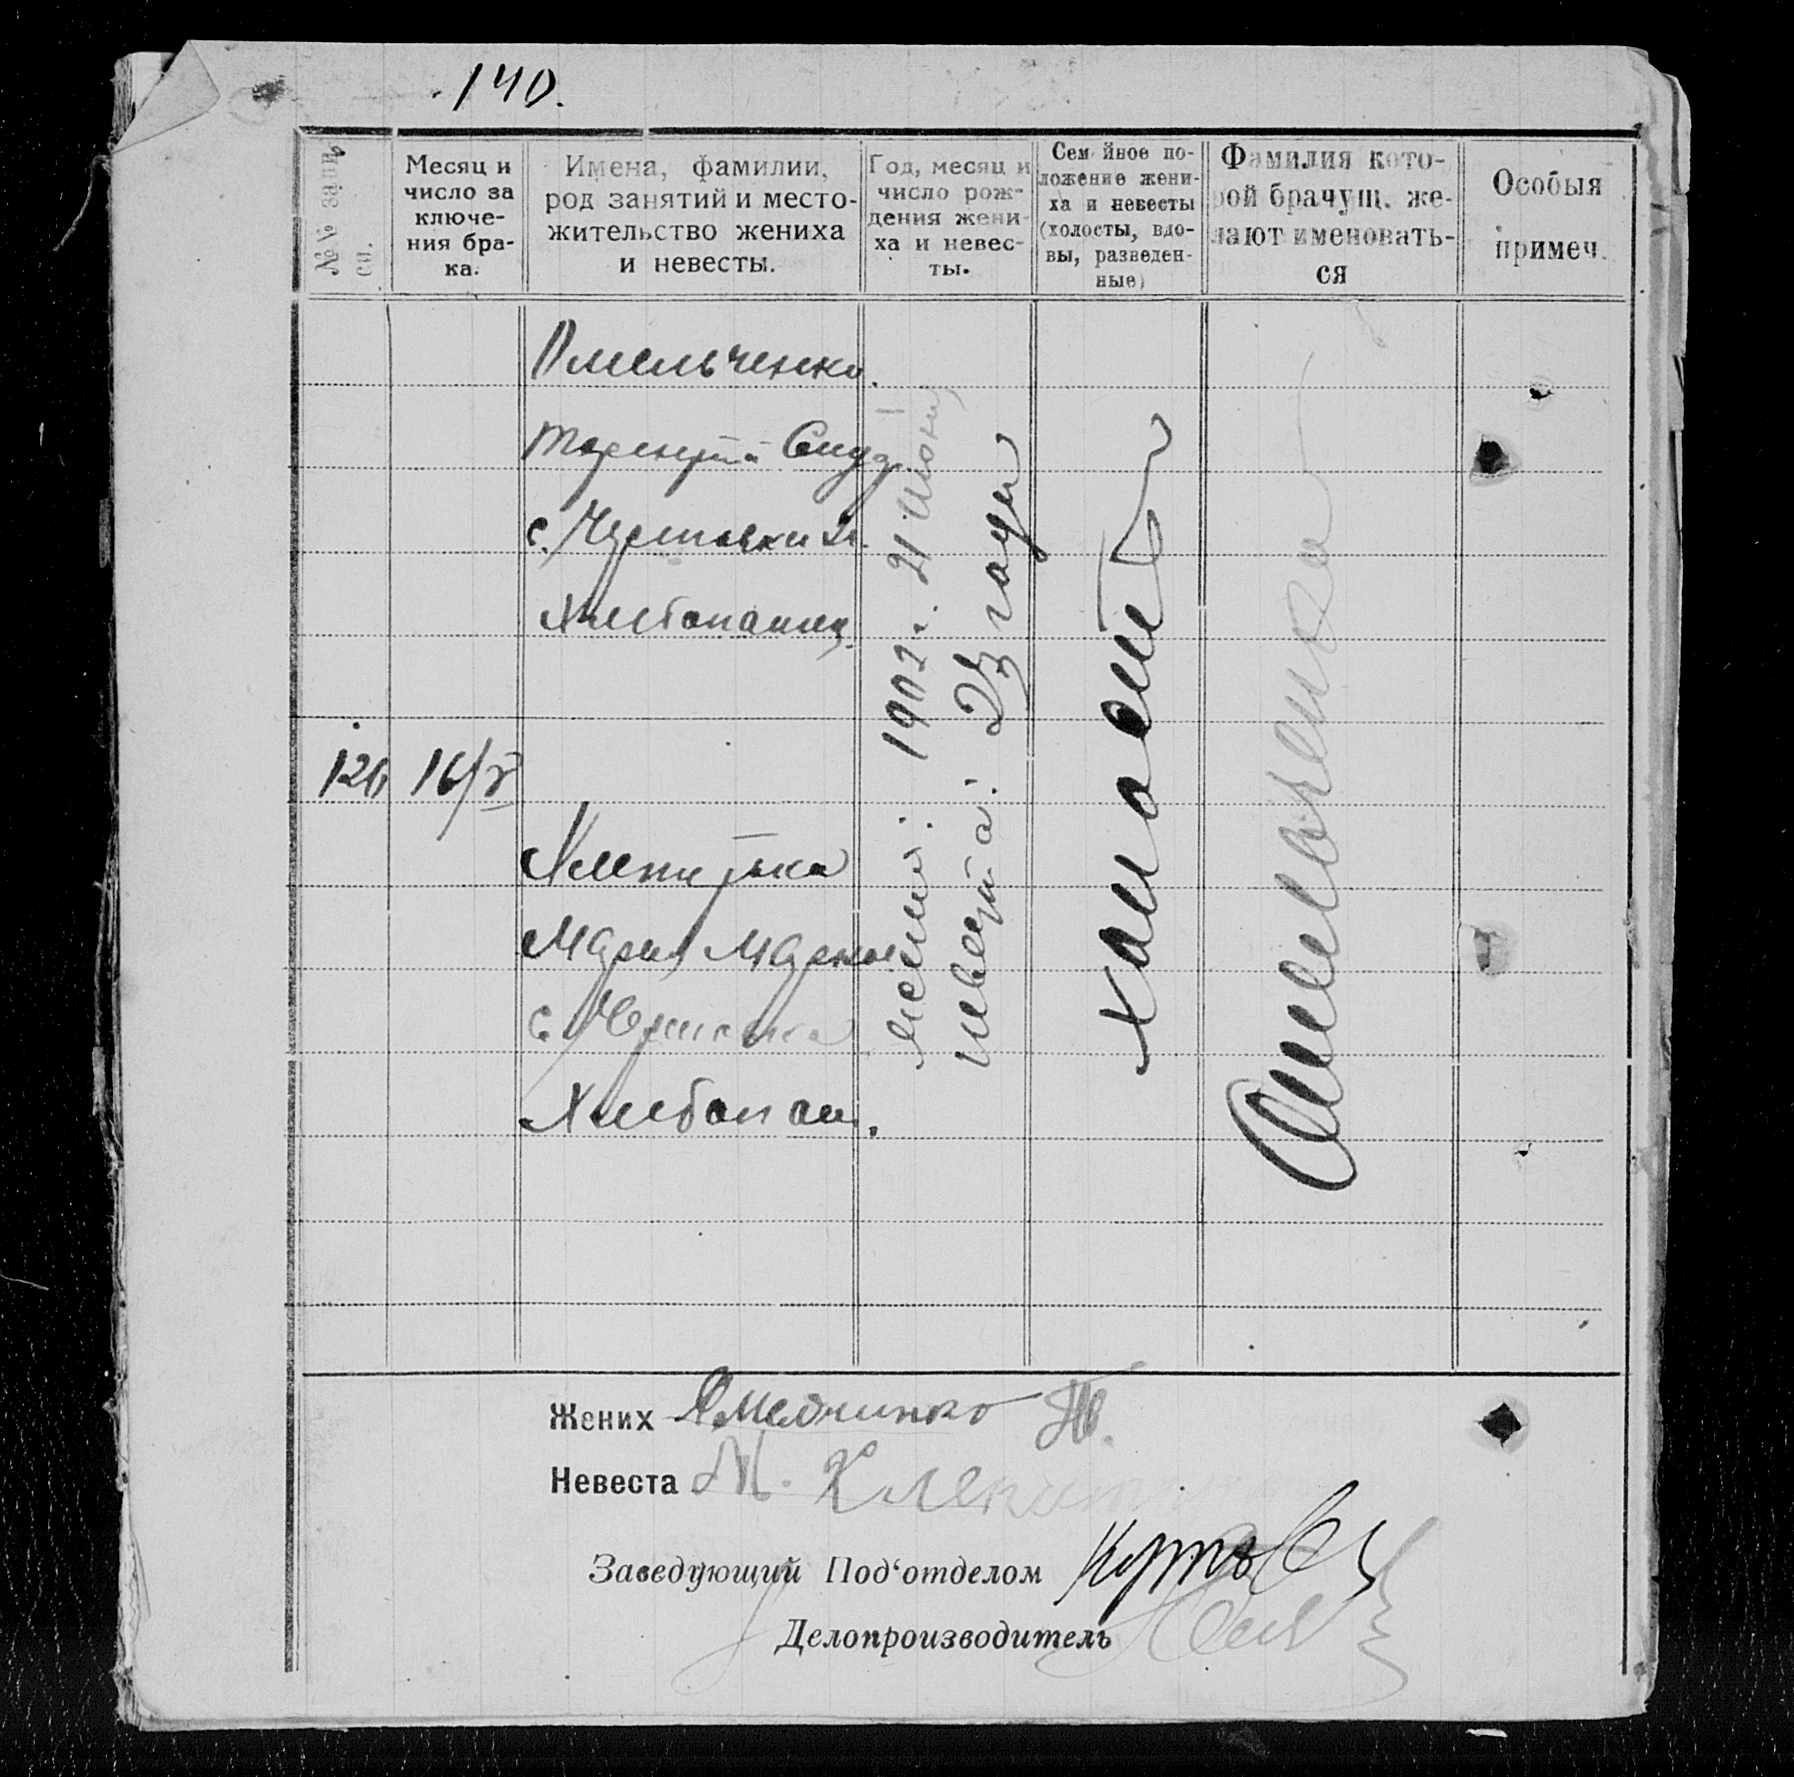 140.
№№ запи
си.
Месяц и
число за
ключе-
ния бра-
ка.
Имена, фамилии,
род занятий и место-
жительство жениха
и невесты.
Год, месяц и
число рож-
дения жени-
ха и невес-
ты.
Семейное по-
ложение жени-
ха и невесты
(холосты, вдо-
вы, разведен-
ные)
Фамилия кото-
рой брачущ. же-
лают именовать-
ся
Особыя
примеч.
Омельченко.
Терентий Сидд.
с.
Хлебопашец.
126 16/V
Клепитька
Мария Марков
с.
Хлебопаш.
жених: 1902 г. 21 Июня
невеста: 23 года
холосты
Омельченко
Жених Омелчинко Т.
Невеста М. Клепит
Заведующий Под'отделом
Делопроизводитель